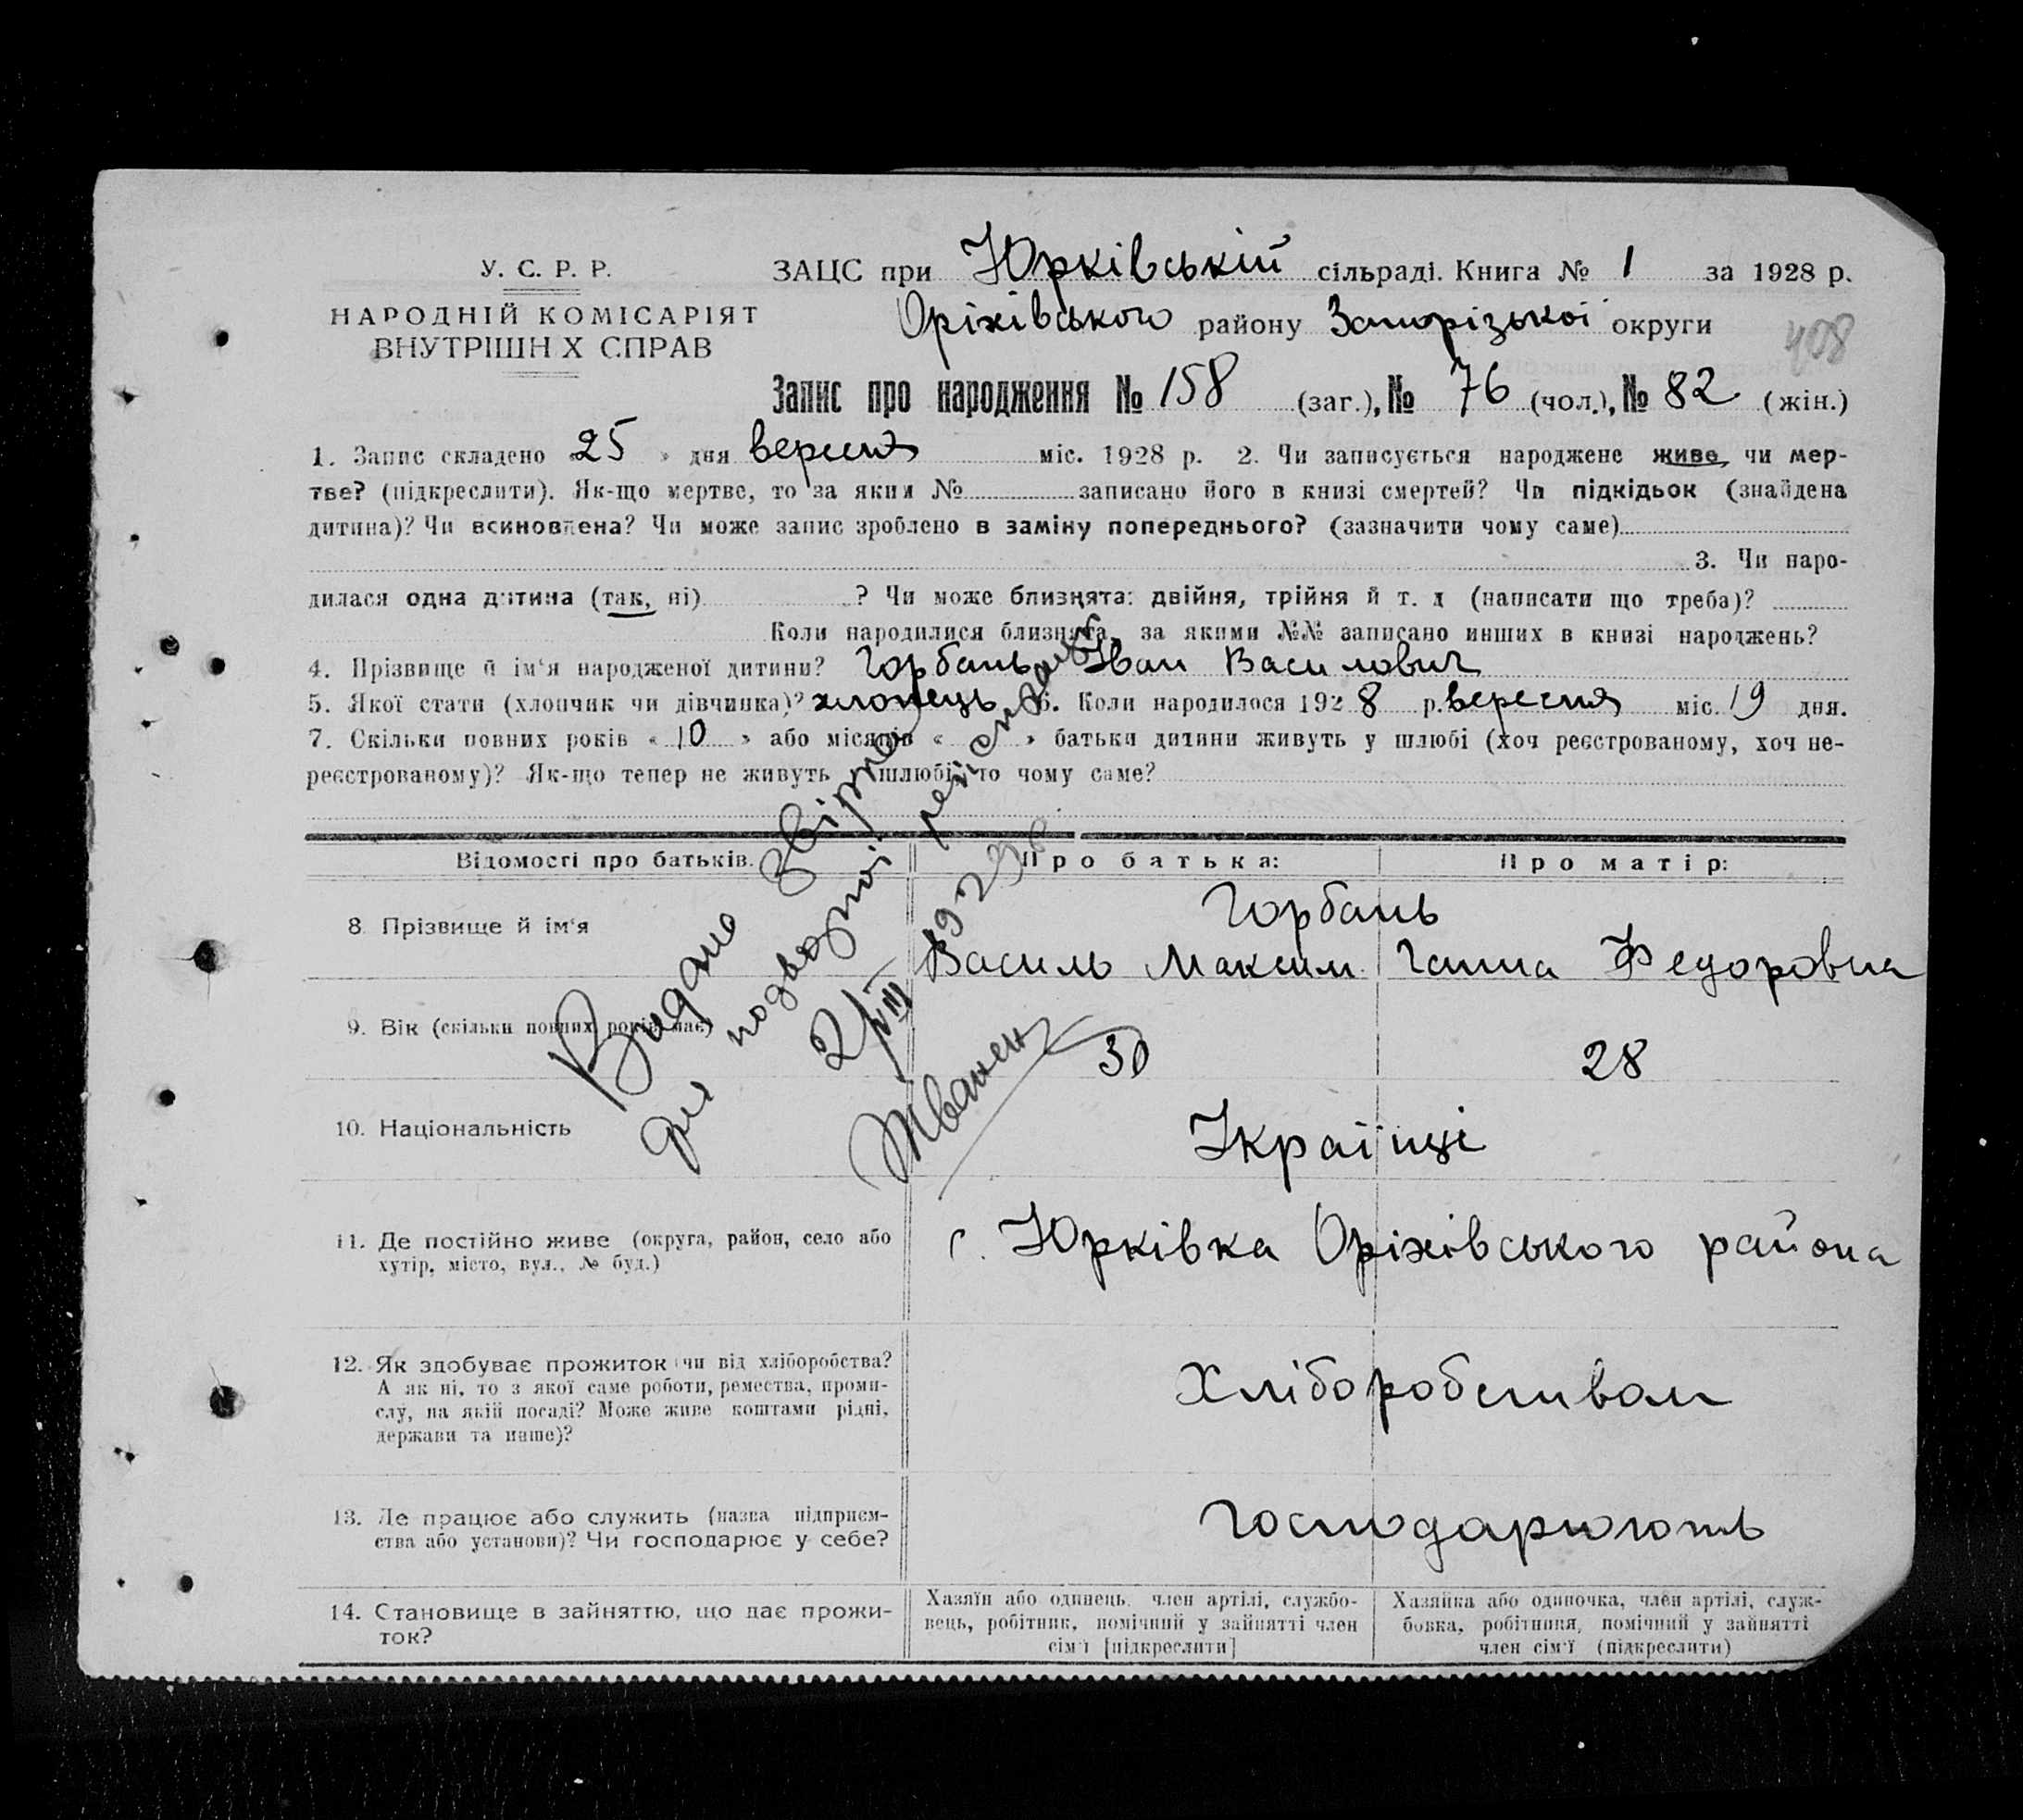 У. С. Р. Р.
НАРОДНІЙ КОМІСАРІЯТ
ВНУТРІШН Х СПРАВ
ЗАЦС при Юрківській сільраді. Книга № 1 за 1928 р.
Оріхівського району Запорізької округи
408
Запис про народження № 158 (заг.), № 76 (чол.), № 82 (жін.)
1. Запис складено «25» дня вересня міс. 1928 р. 2. Чи записується народжене живе, чи мер-
тве? (підкреслити). Як-що мертве, то за яким № записано його в книзі смертей? Чи підкідьок (знайдена
дитина)? Чи всиновлена? Чи може запис зроблено в заміну попереднього? (зазначити чому саме)
3. Чи наро-
дилася одна дитина (так, ні) ? Чи може близнята: двійня, трійня й т. д (написати що треба)?
Коли народилися близнята, за якими №№ записано инших в книзі народжень?
4. Прізвище й ім'я народженої дитини? Горбань Іван Василович
5. Якої стати (хлопчик чи дівчинка)? хлопець 6. Коли народилося 1928 р. вересня міс. 19 дня.
7. Скільки повних років «10» або місяців « » батьки дитини живуть у шлюбі (хоч реєстрованому, хоч не-
реєстрованому)? Як-що тепер не живуть у шлюбі, то чому саме?
Видано звірко
для подвозної
2/VIII
Відомості про батьків. Про батька: Про матір:
8. Прізвище й ім'я Горбань
Василь Максим. Ганна Федоровна
9. Вік (скільки повних років має) 30 28
10. Національність Українці
11. Де постійно живе (округа, район, село або
хутір, місто, вул., № буд.)
с. Юрківка Оріхівського района
12. Як здобуває прожиток чи від хліборобства?
А як ні, то з якої саме роботи, ремества, проми-
слу, на якій посаді? Може живе коштами рідні,
держави та инше)?
Хліборобством
13. Де працює або служить (назва підприєм-
ства або установи)? Чи господарює у себе?
Господарюють
14. Становище в зайняттю, що дає прожи-
ток?
Хазяїн або одинець, член артілі, службо-
вець, робітник, помічний у зайнятті член
сім'ї [підкреслити]
Хазяйка або одиночка, член артілі, служ-
бовка, робітниця, помічний у зайнятті
член сім'ї (підкреслити)